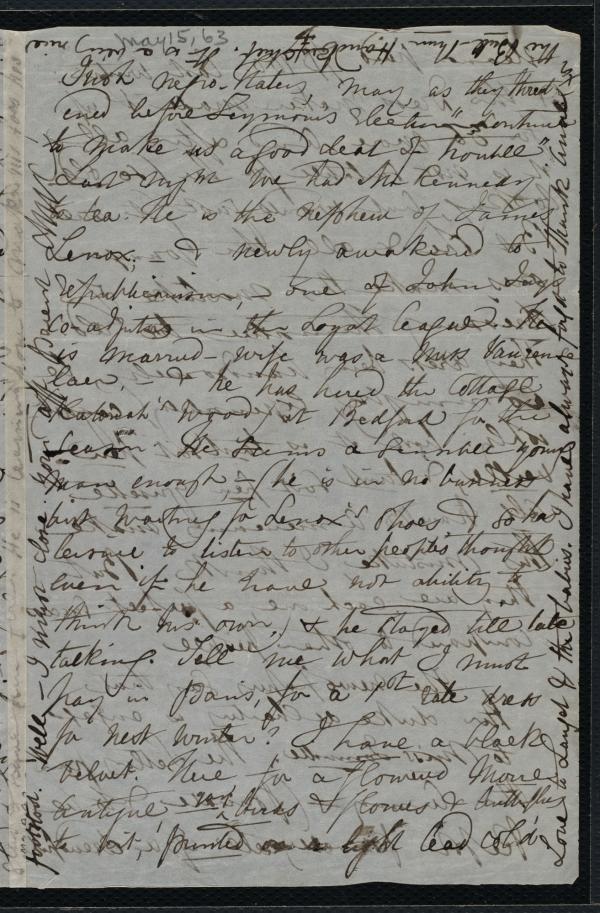 May 15, 63
Irish negro-haters, may as they threat-
ened before Seymour's Election "continue
to make us a good deal of trouble".
Last night we had Mr Kennedy
to tea. he is the nephew of James
Lenox, & newly awakened to
republicanism, - one of John Jay's
co-adjutors in the Loyal League. He
is married - wife was a Miss Van rens
laer, - & he has hired the Cottage
Katonah's wood, at Bedford for the
Season. He seems a sensible young
man enough - (he is in no business
but waiting for Lenox's shoes & so has
leisure to listen to other people's thoughts
even if he have not ability to
think his own.) & he stayed till late
talking. Tell me what I must
pay in Paris, for a 1st rate dress
for next winter? I have a black
velvet. Here for a flowered Moire
antique, birds & flowers & butterflies
to bot, printed on a light lead col'd
Love to & the babies. I have almost forgot to thank Annie for
the Handkerchief. It is a very nice
Well - I must close. Your aff
footstool.